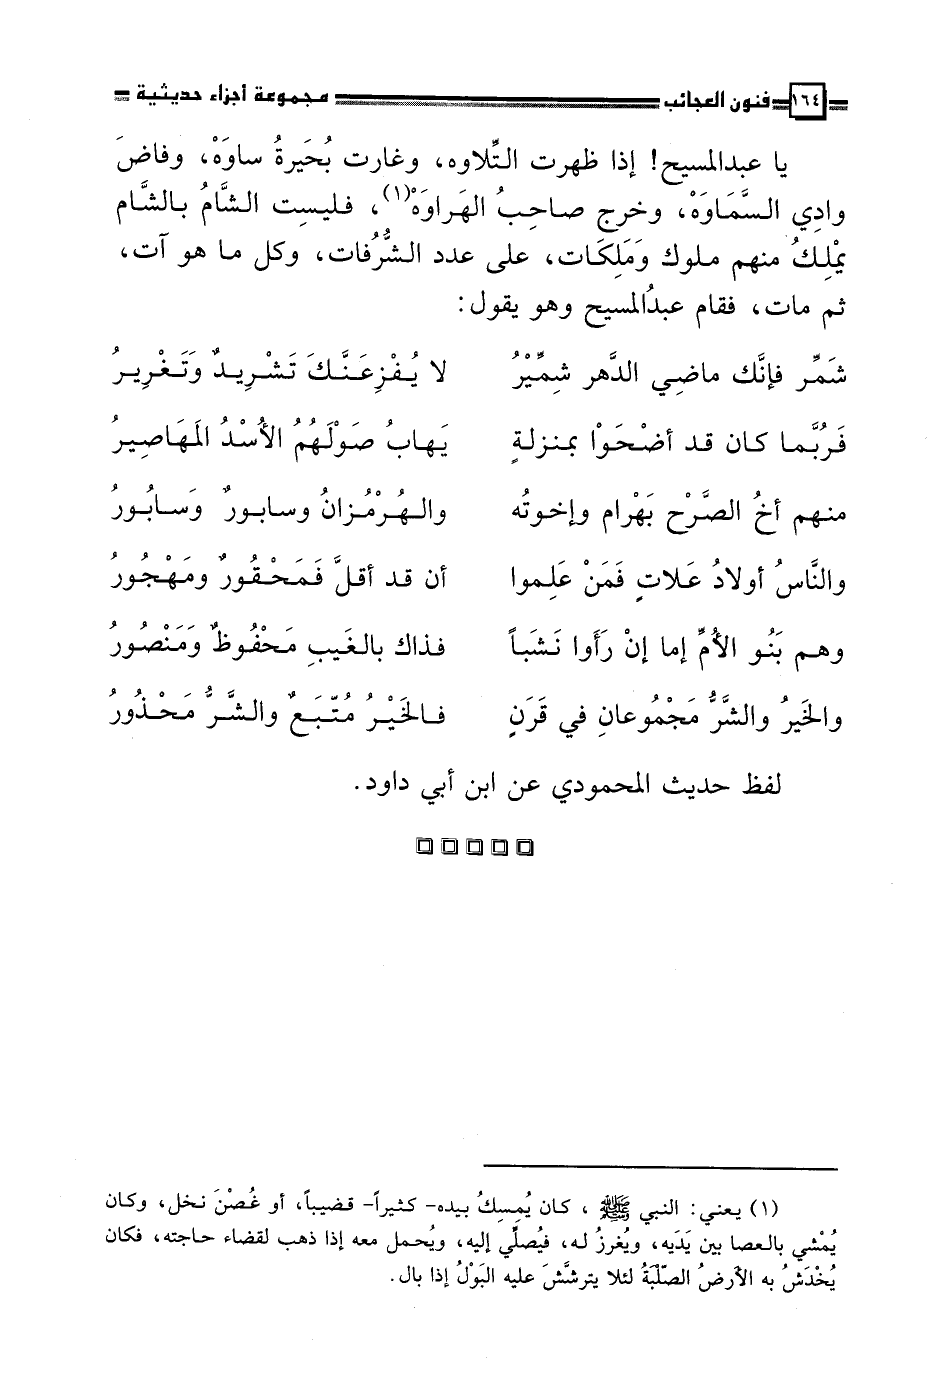 ١٦٤ فنون العجائب مجموعة أجزاء حديثية
يا عبدالمسيح! إذا ظهرت التِّلاوه، وغارت بُحَيرةُ ساوَهْ، وفاضَ
وادي السَّمَاوَهْ، وخرج صاحِبُ الهَراوَهْ(١)، فليست الشَّامُ بالشَّام
يَمْلِكُ منهم ملوك وَمَلِكَات، على عدد الشُّرُفات، وكل ما هو آت،
ثم مات، فقام عبدُالمسيح وهو يقول:
شَمِّر فإنَّك ماضِي الدَّهر شِمِّيْرُ لا يُفْزِعَنَّكَ تَشْرِيدٌ وَتَغْرِيرُ
فَرُبَّما كان قد أضْحَوْا بمنزلةٍ يَهابُ صَوْلَهُمُ الأُسْدُ المَهَاصِيرُ
منهم أخُ الصَّرْح بَهْرام وإخوتُه والهُرْمُزانُ وسابورٌ وَسابُورُ
والنَّاسُ أولادُ عَلاتٍ فَمَنْ عَلِموا أن قد أقلَّ فَمَحْقُورٌ ومَهْجُورُ
وهم بَنُو الأُمِّ إما إنْ رَأَوا نَشَباً فذاك بالغَيبِ مَحْفُوظٌ وَمَنْصُورُ
والخَيرُ والشَّرُّ مَجْمُوعانِ في قَرَنٍ فالخَيْرُ مُتّبَعٌ والشَّرُّ مَحْذُورُ
لفظ حديث المحمودي عن ابن أبي داود.
(١) يعني: النبي ﷺ، كان يُمسِكُ بيده- كثيراً- قضيباً، أو غُصْنَ نخل، وكان
يُمْشي بالعصا بين يَدَيه، ويُغرزُ له، فيُصلِّي إليه، ويُحمل معه إذا ذهب لقضاء حاجته، فكان
يُخْدَشُ به الأرضُ الصّلبَةُ لئلا يترشَّشَ عليه البَوْلُ إذا بال.